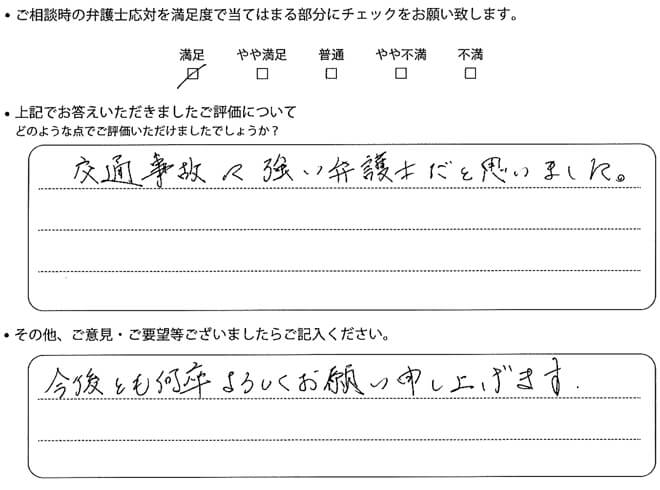 • ご相談時の弁護士応対を満足度で当てはまる部分にチェックをお願い致します。
満足 やや満足 普通 やや不満 不満
☑ □ □ □ □
• 上記でお答えいただきましたご評価について
どのような点でご評価いただけましたでしょうか？
交通事故に強い弁護士だと思いました。
• その他、ご意見・ご要望等ございましたらご記入ください。
今後とも何卒よろしくお願い申し上げます.